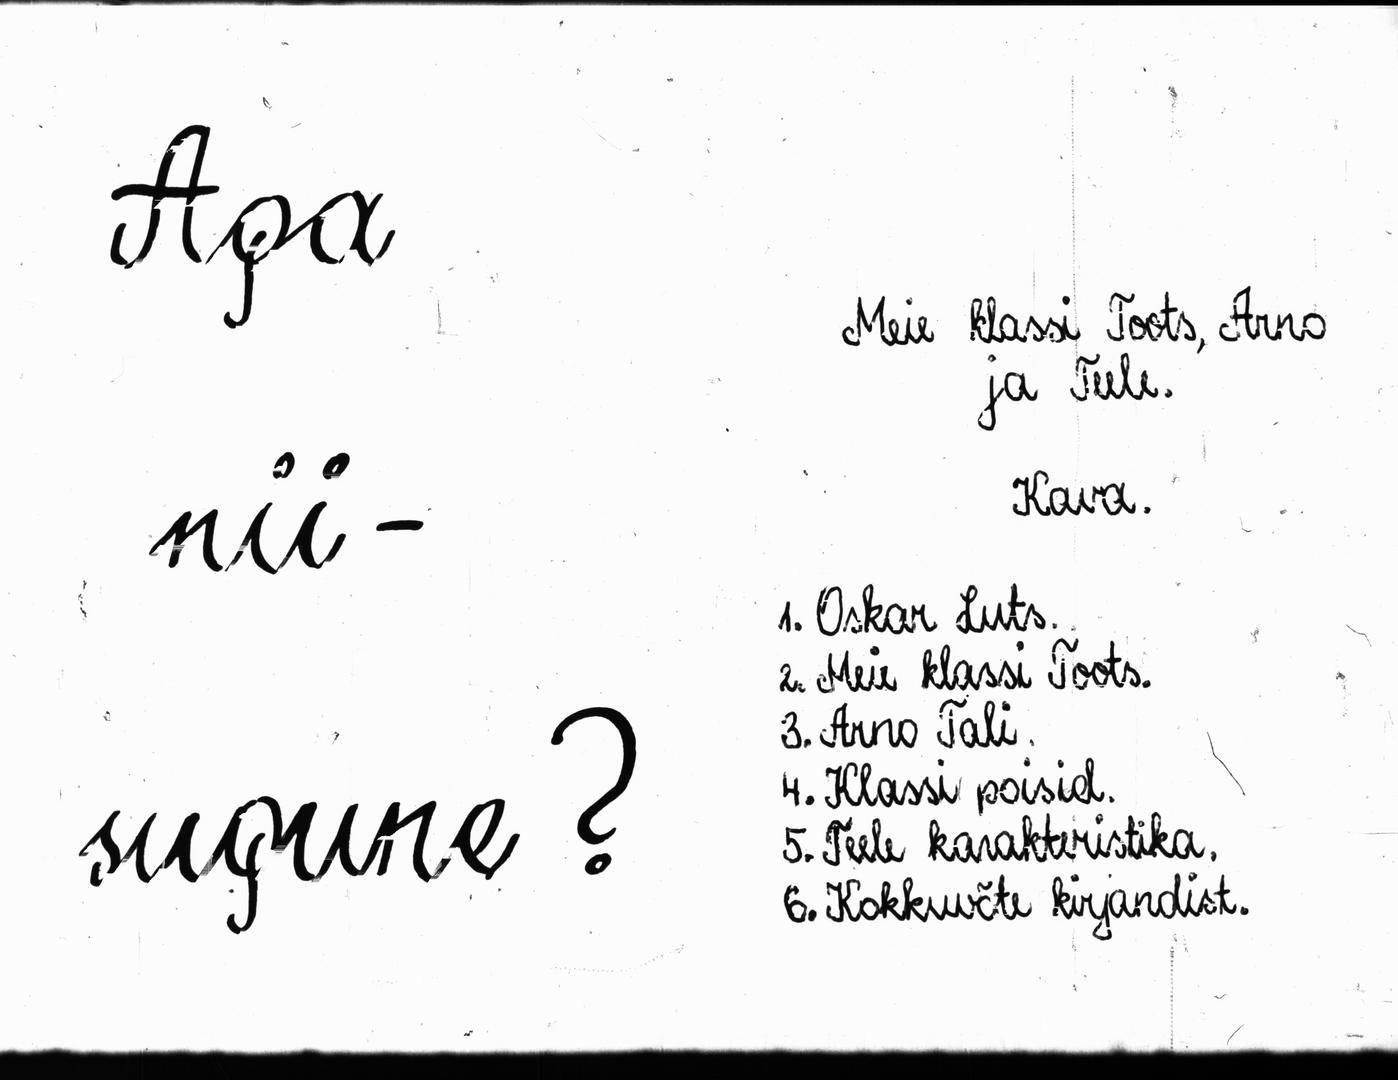 Aga
nii-
sugune?
Meie klassi Toots, Arno
ja Teele.
Kava.
1. Oskar Luts.
2. Meie klassi Toots.
3. Arno Tali.
4. Klassi poisid.
5. Teele karakteristika.
6. Kokkuvõte kirjandist.